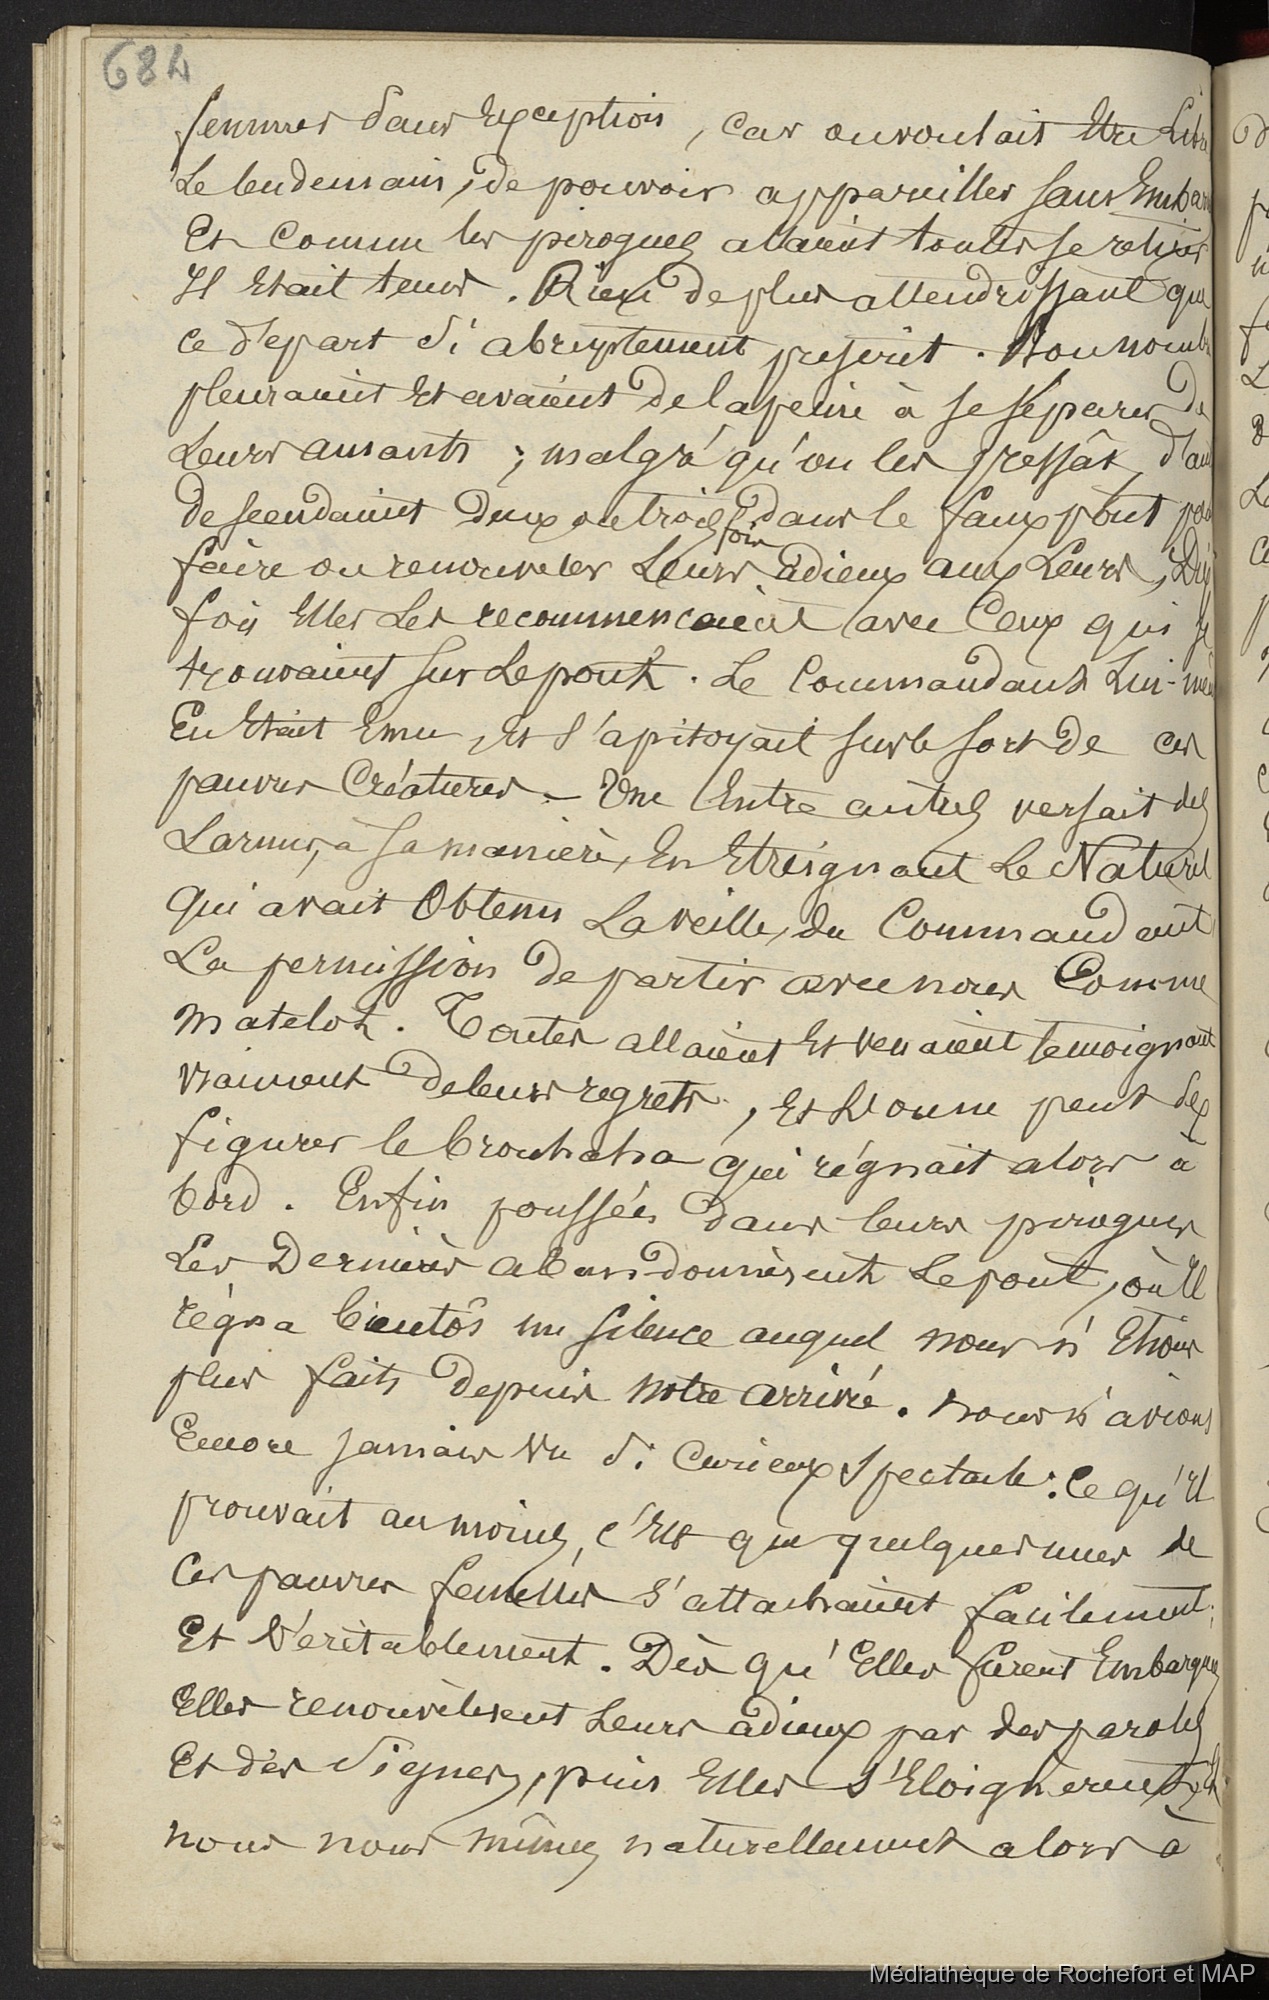 684
femmes sans Exception, car on voulait Etre Libre
Le lendemain, de pouvoir appareiller sans Embar
Et Comme les pirogues allaient toutes se retirer
Il Etait tems. Rien de plus attendrissant que
ce départ si abruptement prescrit. Bon nombre
pleuraient Et avaient de la peine à se séparer de
Leurs amants ; malgré qu'on les pressât, d'au
descendaient deux ou trois fois dans le faux pont pou
faire ou renouveler Leurs adieux aux Leurs, Dix
fois Elles Les recommençaient avec Ceux qui se
trouvaient sur Le pont. Le Commandant Lui-mêm
En Etait Emu, Et s'apitoyait sur le sort de ces
pauvres Créatures. - Une Entre autres versait des
Larmes, à sa manière, En Etreignant Le Naturel
Qui avait Obtenu La veille, du Commandant
La permission de partir avec nous Comme
matelot. Toutes allaient Et venaient témoignant
vraiment de leurs regrets, Et L'on ne peut se
figurer le brouhaha qui régnait alors à
bord. Enfin poussées dans leurs pirogues
Les Dernières abandonnèrent Le pont, où Il
régna bientôt un silence auquel nous n'Etions
plus faits depuis notre arrivée. nous n'avions
Encore jamais Vu si Curieux Spectacle : Ce qu'Il
prouvait au moins, c'Est que quelques unes de
Ces pauvres femelles s'attachaient facilement,
Et Véritablement. Dès qu'Elles furent Embarquées
Elles renouvelèrent Leurs adieux par des paroles
Et des Signes, puis Elles s'Eloignèrent, Et
nous nous mîmes naturellement alors à
Médiathèque de Rochefort et MAP